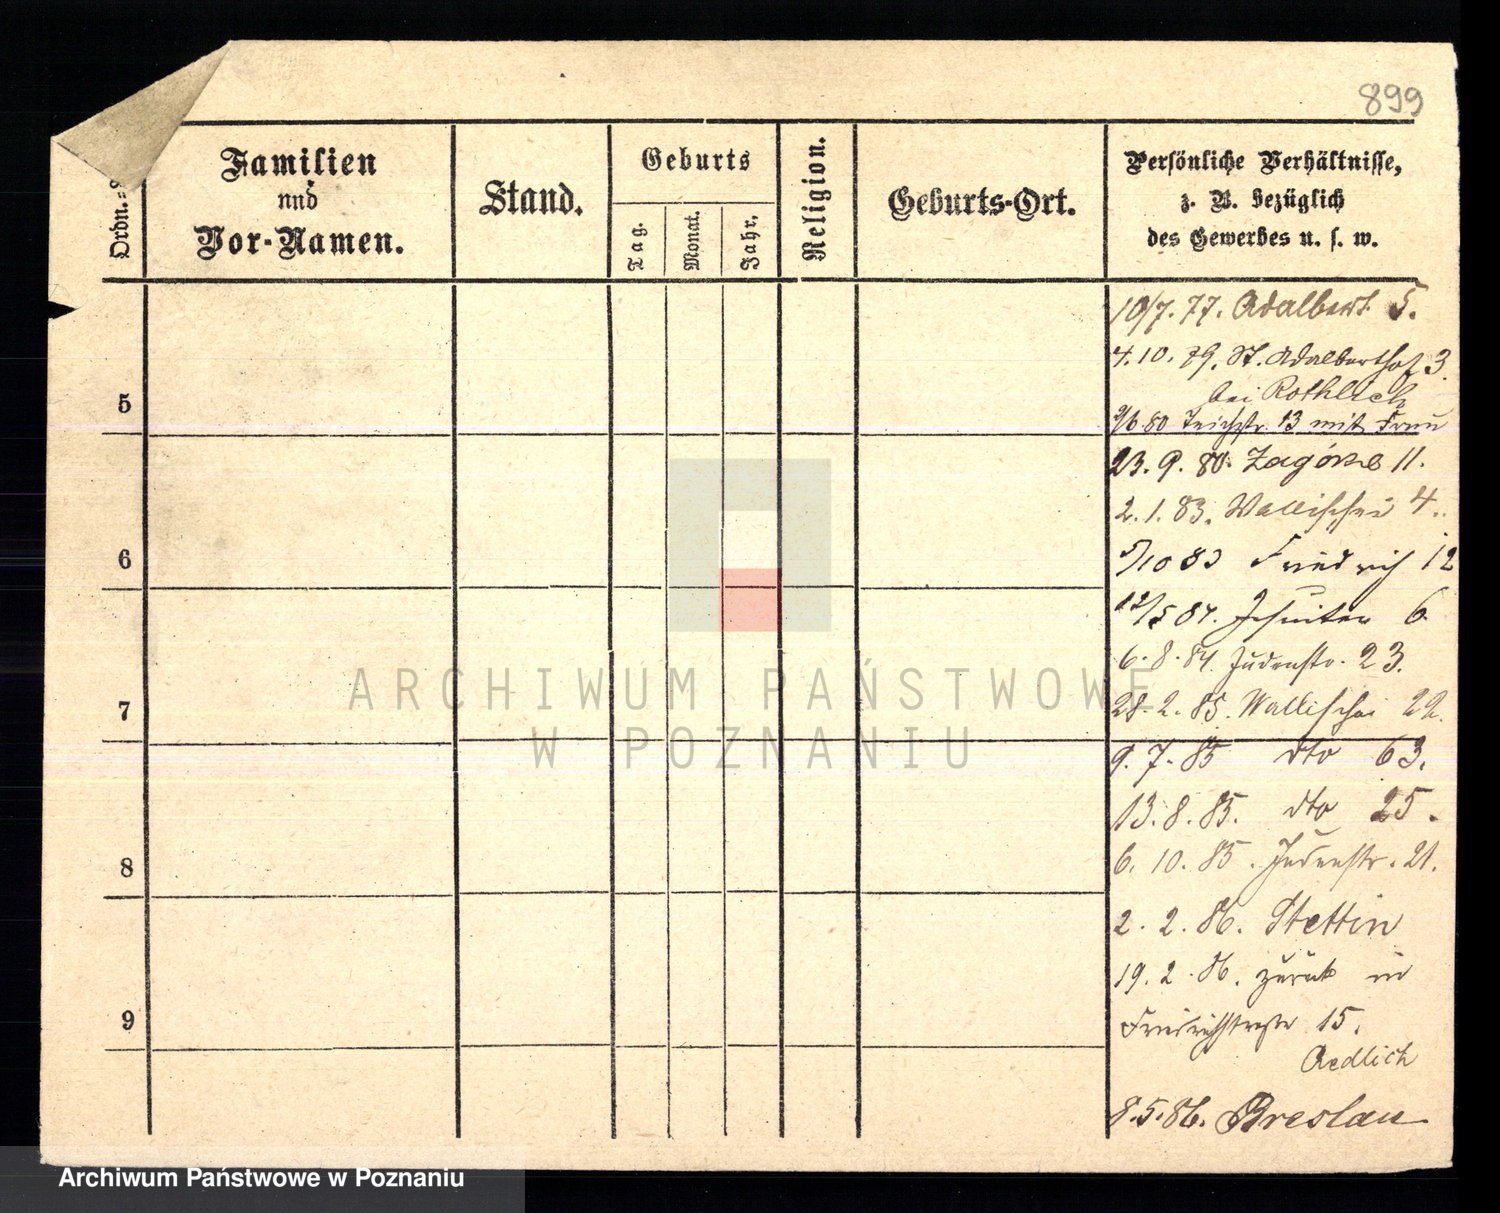 899
Ordn.=
Familien
und
Vor-Namen.
Stand.
Geburts
Tag.
Monat.
Jahr.
Religion.
Geburts-Ort.
Persönliche Verhältnisse,
z. B. bezüglich
des Gewerbes u. s. w.
10/7. 77. Adalbert 5.
4. 10. 79. St. Adalberthof 3.
bei Rothlich
5
9/6 80 Teichstr. 13 mit Frau
23. 9. 80. Zagórze 11.
2. 1. 83. Wallischei 4.
6
5/10 83 Friedrich 12
12/5 84. Jesuiten 6.
6. 8. 84. Judenstr. 23.
7
28. 2. 85. Wallischei 22.
9. 7. 85 dto 63.
13. 8. 85. dto 25.
8
6. 10. 85. Judenstr. 21.
2. 2. 86. Stettin
19. 2. 86. zurück in
9
Friedrichstraße 15.
8. 5. 86. Breslau
ARCHIWUM PAŃSTWOWE
W POZNANIU
Archiwum Państwowe w Poznaniu